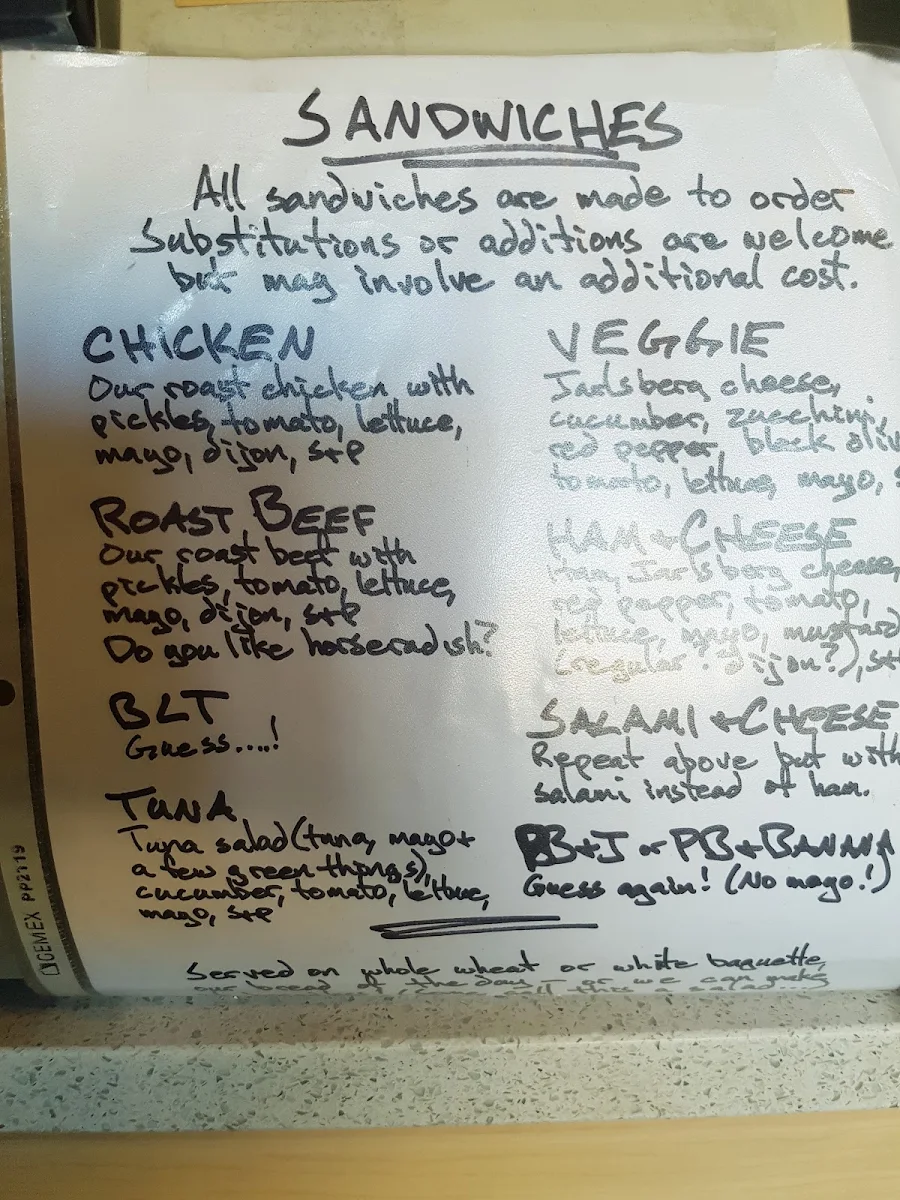 SANDWICHES
All sandwiches are made to order
Substitutions or additions are welcome
but may involve an additional cost.
CHICKEN
Our roast chicken with
pickles, tomato, lettuce,
mayo, dijon, s+p
ROAST BEEF
Our roast beef with
pickles, tomato, lettuce,
mayo, dijon, s+p
Do you like horseradish?
BLT
Guess....!
TUNA
Tuna salad (tuna, mayo +
a few green things),
cucumber, tomato, lettuce,
mayo, s+p
VEGGIE
Jarlsberg cheese,
cucumber, zucchini,
red pepper, black
tomato, lettuce, mayo,
HAM + CHEESE
Ham, Jarlsberg cheese,
red pepper, tomato,
lettuce, mayo, mustard
(regular? dijon?),
SALAMI + CHEESE
Repeat above but with
salami instead of ham.
PB+J or PB+BANANA
Guess again! (No mayo!)
Served on whole wheat or white baguette,
our bread of the day - or we can make
GEMEX PP2119